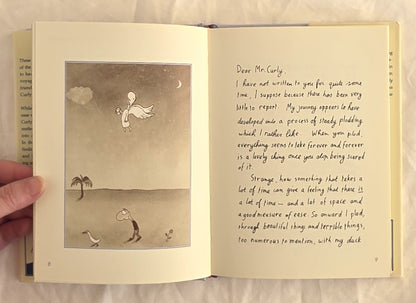 Dear Mr. Curly,
I have not written to you for quite some
time, I suppose because there has been very
little to report. My journey appears to have
developed into a process of steady plodding
which I rather like. When you plod,
everything seems to take forever and forever
is a lovely thing once you stop being scared
of it.
Strange, how something that takes a
lot of time can give a feeling that there is
a lot of time — and a lot of space and
a good measure of ease. So onward I plod,
through beautiful things and terrible things,
too numerous to mention, with my duck
8
9